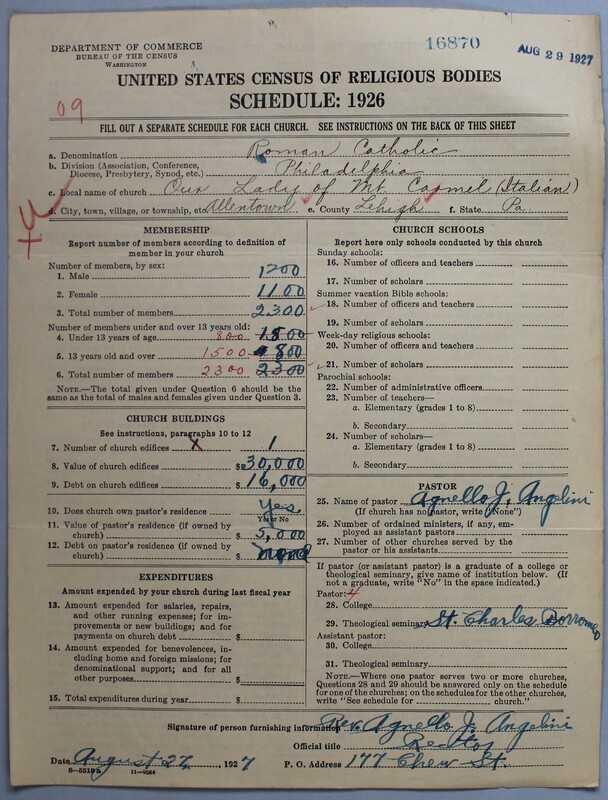 DEPARTMENT OF COMMERCE
BUREAU OF THE CENSUS
WASHINGTON
16870
AUG 29 1927
UNITED STATES CENSUS OF RELIGIOUS BODIES
SCHEDULE: 1926
09
FILL OUT A SEPARATE SCHEDULE FOR EACH CHURCH. SEE INSTRUCTIONS ON THE BACK OF THIS SHEET
a. Denomination Roman Catholic
b. Division (Association, Conference, Diocese, Presbytery, Synod, etc.) Philadelphia
c. Local name of church Our Lady of Mt. Carmel (Italian)
d. City, town, village, or township, etc. Allentown e. County Lehigh f. State Pa.
MEMBERSHIP
Report number of members according to definition of
member in your church
Number of members, by sex:
1. Male 1200
2. Female 1100
3. Total number of members 2300
Number of members under and over 13 years old:
4. Under 13 years of age 800 1500
5. 13 years old and over 1500 800
6. Total number of members 2300 2300
NOTE.—The total given under Question 6 should be
the same as the total of males and females given under Question 3.
CHURCH BUILDINGS
See instructions, paragraphs 10 to 12
7. Number of church edifices 1
8. Value of church edifices $30,000
9. Debt on church edifices $16,000
10. Does church own pastor's residence? Yes
Yes or No
11. Value of pastor's residence (if owned by
church) $5,000
12. Debt on pastor's residence (if owned by
church) $ none
EXPENDITURES
Amount expended by your church during last fiscal year
13. Amount expended for salaries, repairs,
and other running expenses; for im-
provements or new buildings; and for
payments on church debt $
14. Amount expended for benevolences, in-
cluding home and foreign missions; for
denominational support; and for all
other purposes $
15. Total expenditures during year $
CHURCH SCHOOLS
Report here only schools conducted by this church
Sunday schools:
16. Number of officers and teachers
17. Number of scholars
Summer vacation Bible schools:
18. Number of officers and teachers
19. Number of scholars
Week-day religious schools:
20. Number of officers and teachers
21. Number of scholars
Parochial schools:
22. Number of administrative officers
23. Number of teachers—
a. Elementary (grades 1 to 8)
b. Secondary
24. Number of scholars—
a. Elementary (grades 1 to 8)
b. Secondary
PASTOR
25. Name of pastor Agnello J. Angelini
(If church has no pastor, write "None")
26. Number of ordained ministers, if any, em-
ployed as assistant pastors
27. Number of other churches served by the
pastor or his assistants
If pastor (or assistant pastor) is a graduate of a college or
theological seminary, give name of institution below. (If
not a graduate, write "No" in the space indicated.)
Pastor: 4
28. College
29. Theological seminary St. Charles Borromeo
Assistant pastor:
30. College
31. Theological seminary
NOTE.—Where one pastor serves two or more churches,
Questions 28 and 29 should be answered only on the schedule
for one of the churches; on the schedules for the other churches,
write "See schedule for church."
Signature of person furnishing information Rev. Agnello J. Angelini
Official title Rector
Date August 27, 1927 P. O. Address 177 Chew St.
11—9054